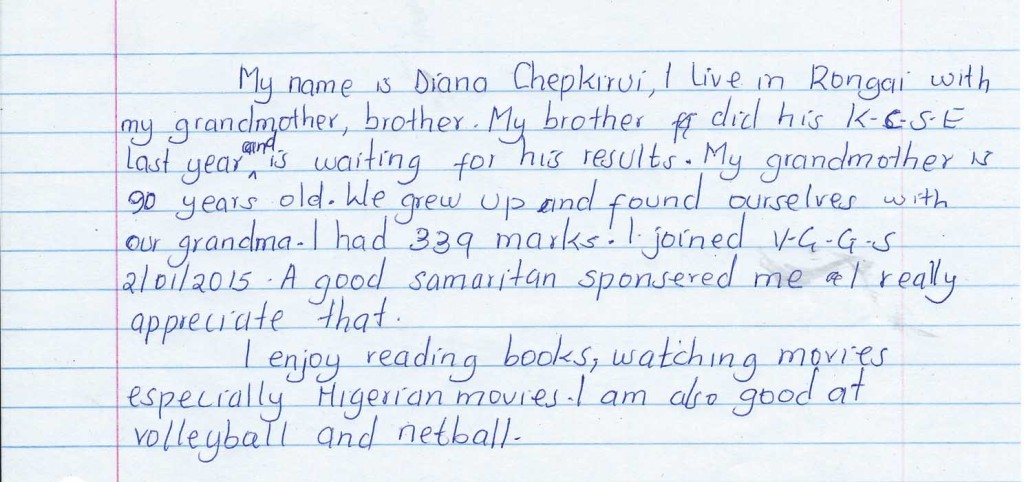 My name is Diana Chepkirui, I Live in Rongai with
my grandmother, brother. My brother did his K-C-S-E
last year and is waiting for his results. My grandmother is
90 years old. We grew up and found ourselves with
our grandma. I had 339 marks. I joined V-G-G-S
2/01/2015. A good samaritan sponsered me I really
appreciate that.
I enjoy reading books, watching movies
especially Nigerian movies. I am also good at
volleyball and netball.